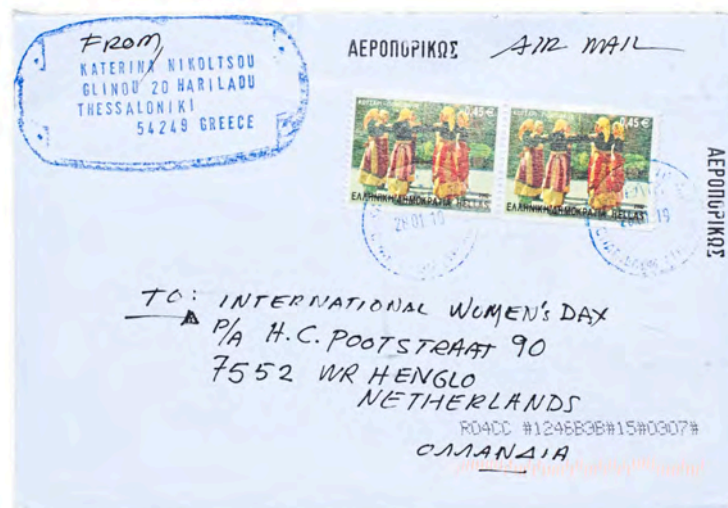 FROM
KATERINA NIKOLTSOU
GLINOU 20 HARILAOU
THESSALONIKI
54249 GREECE
ΑΕΡΟΠΟΡΙΚΩΣ AIR MAIL
0,45 € 0,45 €
ΕΛΛΗΝΙΚΗ ΔΗΜΟΚΡΑΤΙΑ HELLAS ΕΛΛΗΝΙΚΗ ΔΗΜΟΚΡΑΤΙΑ HELLAS
28.01.19 28.01.19
ΑΕΡΟΠΟΡΙΚΩΣ
TO: INTERNATIONAL WOMEN'S DAY
P/A H.C. POOTSTRAAT 90
7552 WR HENGLO
NETHERLANDS
R04CC #1246B3B#15#0307#
ΟΛΛΑΝΔΙΑ